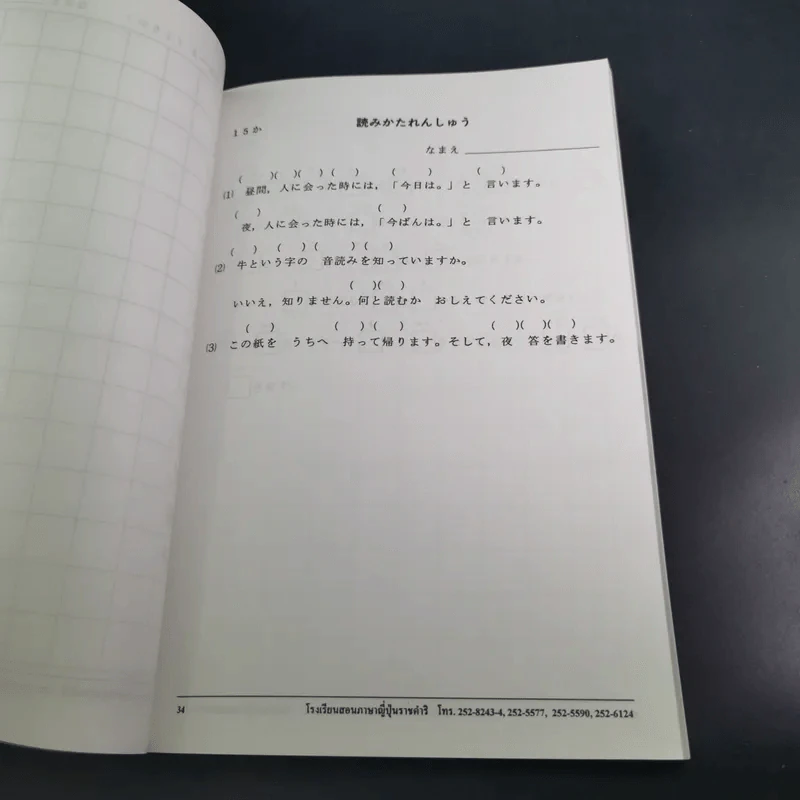 読みかたれんしゅう
15か
なまえ
(    )(  )(  )(  )    (    )    (  )
(1) 昼間，人に会った時には，「今日は。」と 言います。
(  )    (  )
夜，人に会った時には，「今ばんは。」と 言います。
(  )  (  )(    )(  )
(2) 牛という字の 音読みを知っていますか。
(  )(  )
いいえ，知りません。何と読むか おしえてください。
(  )    (  )(  )    (  )(  )(  )
(3) この紙を うちへ 持って帰ります。そして，夜 答を書きます。
34 โรงเรียนสอนภาษาญี่ปุ่นราชดำริ โทร. 252-8243-4, 252-5577, 252-5590, 252-6124